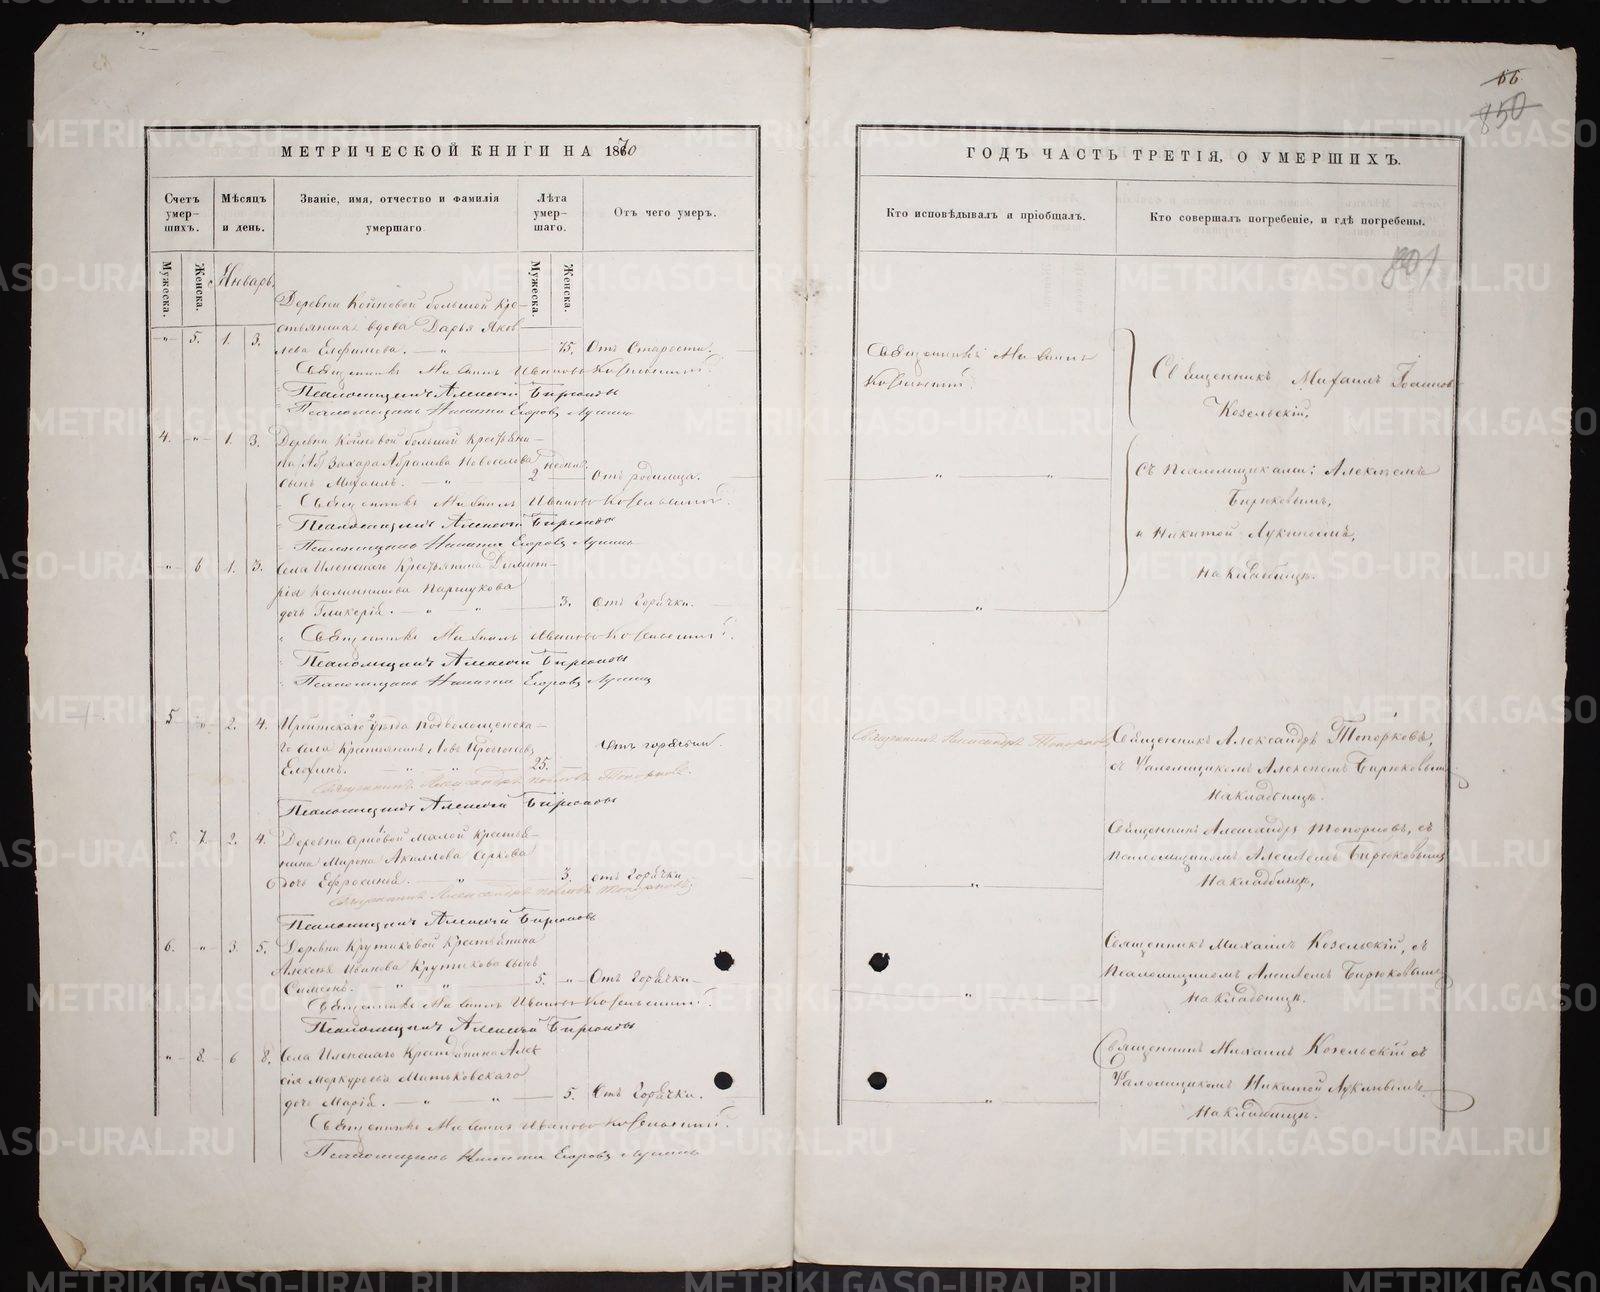 66
850
МЕТРИЧЕСКОЙ КНИГИ НА 1870
ГОДЪ ЧАСТЬ ТРЕТІЯ, О УМЕРШИХЪ.
Счетъ умер-шихъ.
Мѣсяцъ и день.
Званіе, имя, отчество и фамилія умершаго.
Лѣта умер-шаго.
Отъ чего умеръ.
Кто исповѣдывалъ и пріобщалъ.
Кто совершалъ погребеніе, и гдѣ погребены.
Мужеска.
Женска.
Январь.
Мужеска.
Женска.
801
Деревни Койновой большой кре-
стьянша вдова Дарья Яков
" 5. 1. 3. лева Елфимова. — " — 75. Отъ Старости.
Священникъ Михаилъ Ивановъ Козельскій.
Псаломщикъ Алексѣй Бирюковъ
Псаломщикъ Никита Егоровъ Лукинъ
Священникъ Михаилъ
Козельскій.
Священникъ Михаилъ Іоаннов
Козельскій,
4. " 1. 3. Деревни Койновой большой Крестьяни-
на Захара Абрамова Новоселова
сынъ Михаилъ. — " 2 недѣл. Отъ родимца.
Священникъ Михаилъ Ивановъ Козельскій.
Псаломщикъ Алексѣй Бирюковъ
Псаломщикъ Никита Егоровъ Лукинъ
" "
съ Псаломщиками: Алексѣемъ
Бирюковымъ,
и Никитой Лукинымъ,
на кладбищѣ.
" 6 1. 3. Села Иленскаго Крестьянина Димит-
рія Калинникова Паршукова
дочь Гликерія. — " " — 3. Отъ Горячки.
Священникъ Михаилъ Ивановъ Козельскій.
Псаломщикъ Алексѣй Бирюковъ
Псаломщикъ Никита Егоровъ Лукинъ
"
5 " 2. 4. уѣзда Подволошенска-
го села Крестьянинъ
25. Отъ горячки.
Священникъ Александръ Топорковъ.
Псаломщикъ Алексѣй Бирюковъ
Священникъ Александръ Топорковъ
Священникъ Александръ Топорковъ,
съ Псаломщикомъ Алексѣемъ Бирюковымъ
на кладбищѣ.
7. 2. 4. Деревни Малой Крестья-
нина Мирона Акиллова
дочь Ефросинья. — " — 3. отъ Горячки
Священникъ Александръ Топорковъ
Псаломщикъ Алексѣй Бирюковъ
"
Священникъ Александръ Топорковъ, съ
Псаломщикомъ Алексѣемъ Бирюковымъ
на кладбищѣ,
6. " 3. 5. Деревни Крутиковой Крестьянина
Алексѣя Иванова Крутикова сынъ
Симеонъ. " " 5. " Отъ Горячки
Священникъ Михаилъ Ивановъ Козельскій.
Псаломщикъ Алексѣй Бирюковъ
"
Священникъ Михаилъ Козельскій, съ
Псаломщикомъ Алексѣемъ Бирюковымъ
на кладбищѣ.
" 8. 6 8. Села Иленскаго Крестьянина Алек
сія Меркурьева Митьковскаго
дочь Марія. — " " — 5. Отъ Горячки.
Священникъ Михаилъ Ивановъ Козельскій.
Псаломщикъ Никита Егоровъ Лукинъ
"
Священникъ Михаилъ Козельскій съ
Псаломщикомъ Никитой Лукинымъ
на кладбищѣ.
METRIKI.GASO-URAL.RU